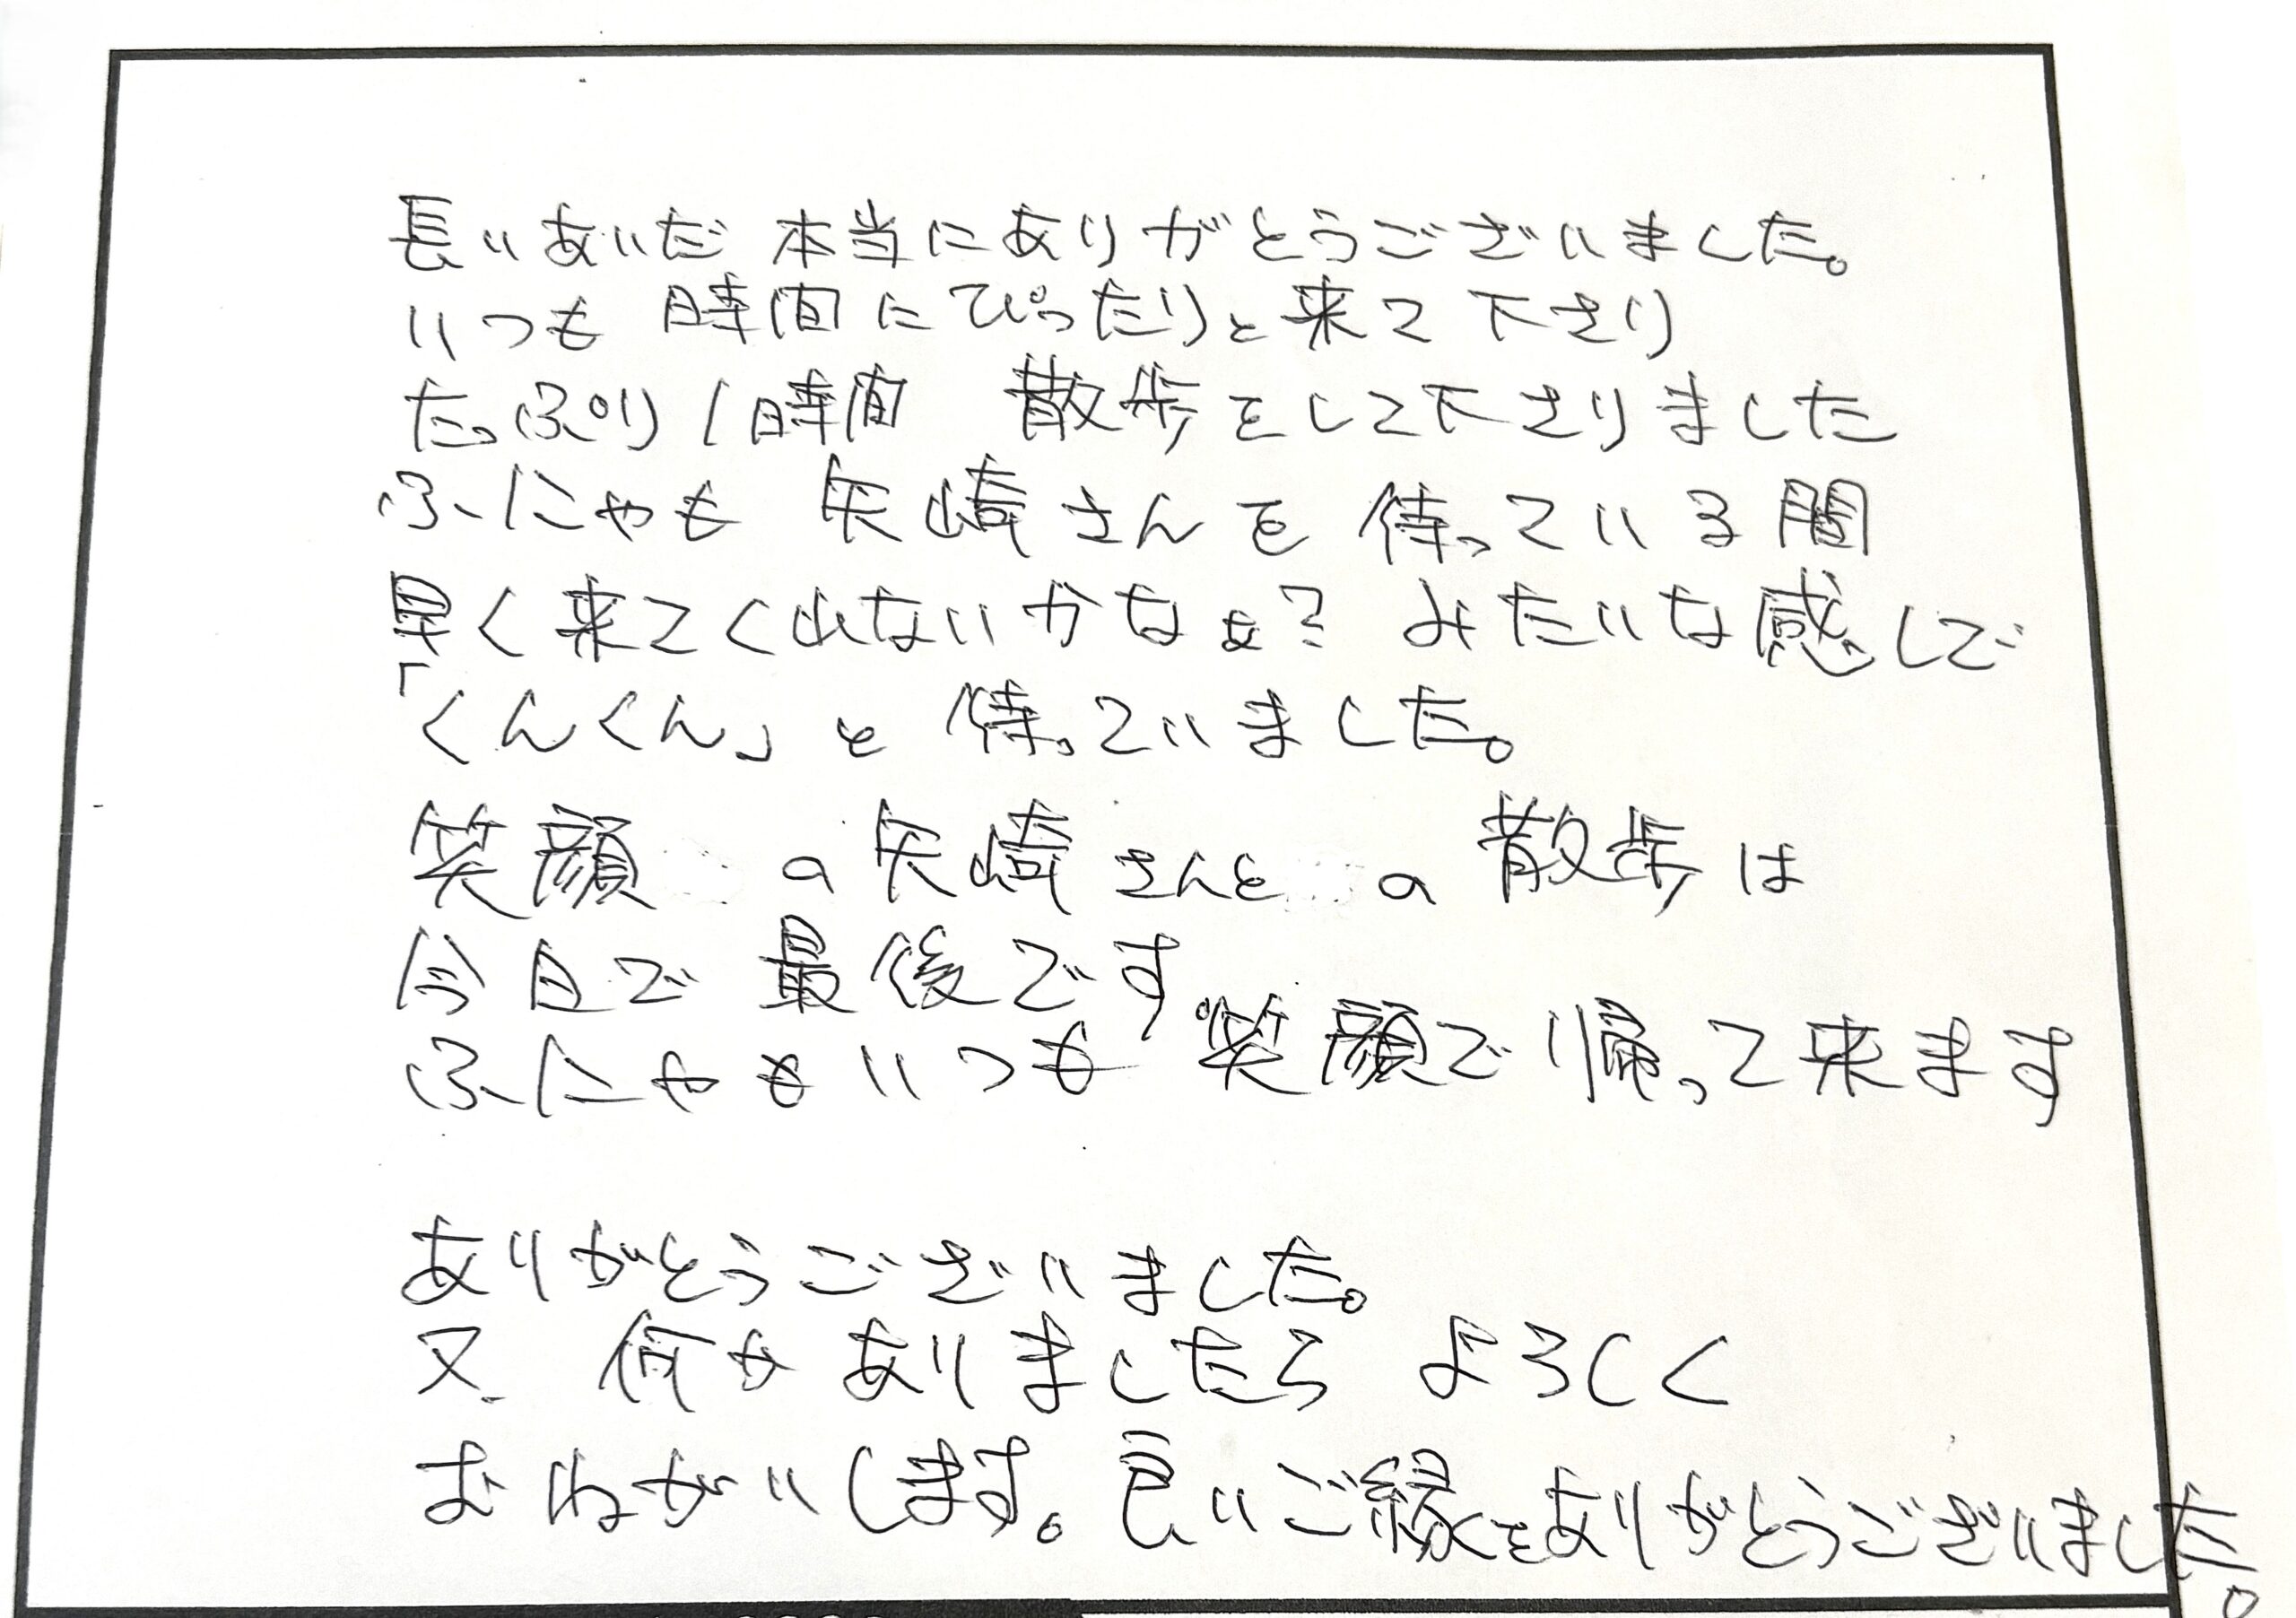 長いあいだ 本当にありがとうございました。
いつも 時間にぴったりと来て下さり
たっぷり1時間 散歩をして下さりました
ふにゃも 矢崎さんを 待っている間
早く来てくれないかなぁ? みたいな感じで
「くんくん」と待っていました。
笑顔の矢崎さんとの散歩は
今日で最後です
ふにゃもいつも笑顔で帰って来ます
ありがとうございました。
又 何かありましたら よろしく
おねがいします。良いご縁をありがとうございました。